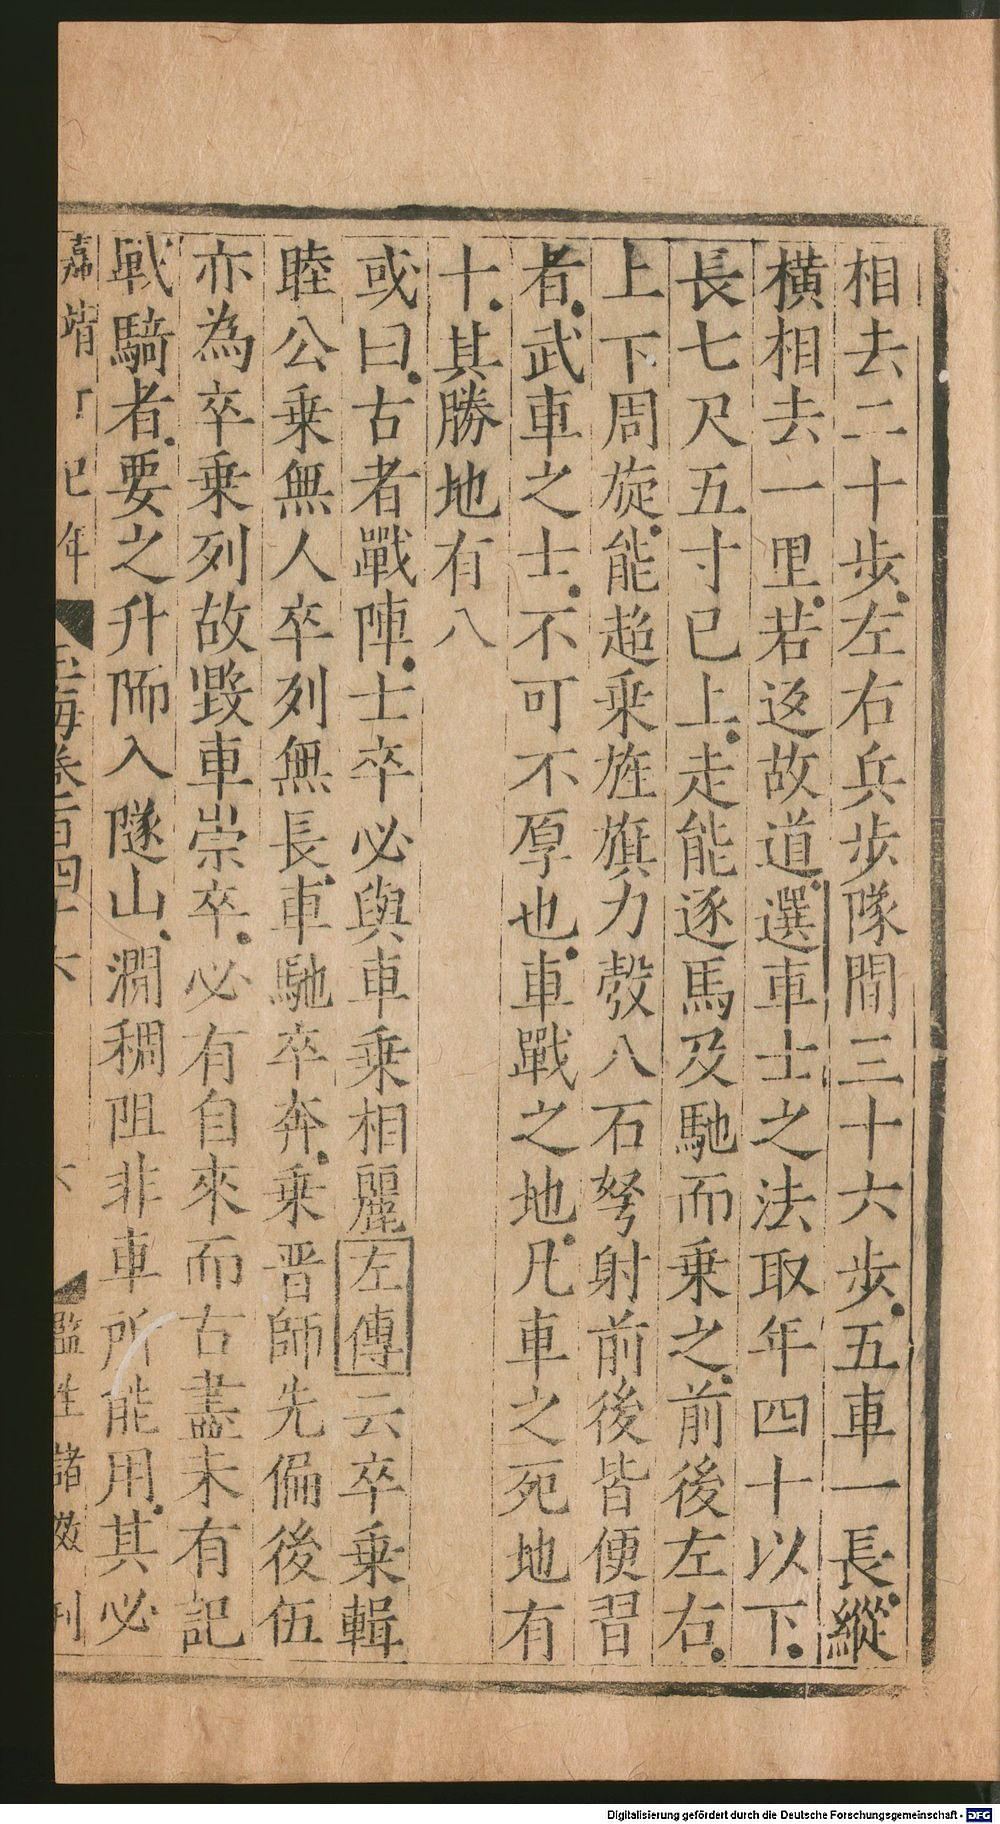 相去二十步左右兵步隊間三十六步五車一長縱
橫相去一里若返故道選車士之法取年四十以下
長七尺五寸已上走能逐馬及馳而乗之前後左右
上下周旋能趂乗旌旗力彀八石弩射前後皆便習
者武車之士不可不厚也車戰之地凡車之死地有
十其勝地有八
或曰古者戰陣士卒必與車乗相麗左傳云卒乗輯
睦公乗無人卒列無長車馳卒奔乗晋師先偏後伍
亦為卒乗列故毀車崇卒必有自來而古盡未有記
戰騎者要之升陑入隧山澗稠阻非車所能用其必
嘉靖丁巳年 玉海卷一百四十六 六 監生諸 刊
Digitalisierung gefördert durch die Deutsche Forschungsgemeinschaft - DFG